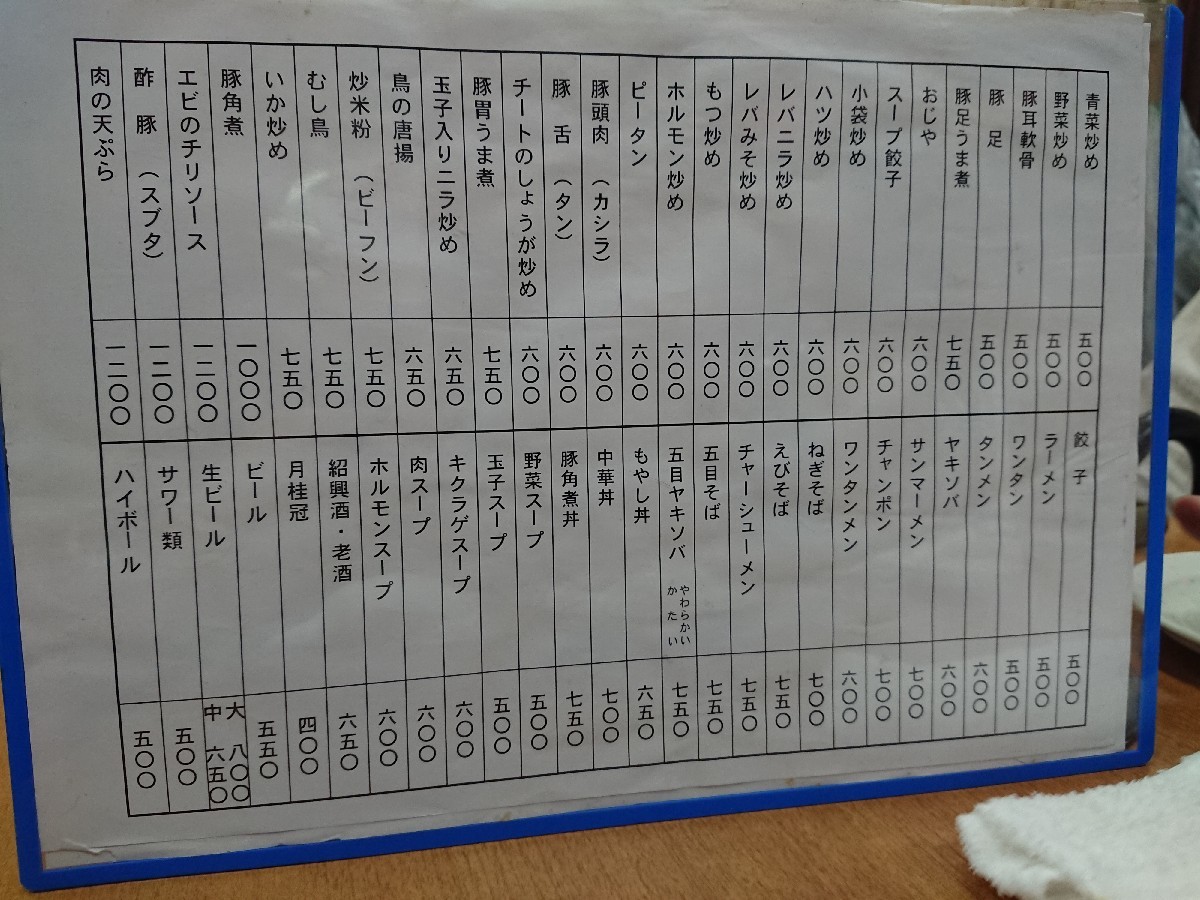 青菜炒め 五〇〇
野菜炒め 五〇〇
豚耳軟骨 五〇〇
豚 足 五〇〇
豚足うま煮 七五〇
おじや 六〇〇
スープ餃子 六〇〇
小袋炒め 六〇〇
ハツ炒め 六〇〇
レバニラ炒め 六〇〇
レバみそ炒め 六〇〇
もつ炒め 六〇〇
ホルモン炒め 六〇〇
ピータン 六〇〇
豚頭肉（カシラ） 六〇〇
豚 舌（タン） 六〇〇
チートのしょうが炒め 六〇〇
豚胃うま煮 七五〇
玉子入りニラ炒め 六五〇
鳥の唐揚 六五〇
炒米粉（ビーフン） 七五〇
むし鳥 七五〇
いか炒め 七五〇
豚角煮 一〇〇〇
エビのチリソース 一二〇〇
酢 豚（スブタ） 一二〇〇
肉の天ぷら 一二〇〇
餃 子 五〇〇
ラーメン 五〇〇
ワンタン 五〇〇
タンメン 六〇〇
ヤキソバ 六〇〇
サンマーメン 七〇〇
チャンポン 七〇〇
ワンタンメン 六〇〇
ねぎそば 七〇〇
えびそば 七五〇
チャーシューメン 七五〇
五目そば 七五〇
五目ヤキソバ やわらかい かたい 七五〇
もやし丼 六五〇
中華丼 七〇〇
豚角煮丼 七五〇
野菜スープ 五〇〇
玉子スープ 五〇〇
キクラゲスープ 六〇〇
肉スープ 六〇〇
ホルモンスープ 六〇〇
紹興酒・老酒 六五〇
月桂冠 四〇〇
ビール 五五〇
生ビール 大 八〇〇 中 六五〇
サワー類 五〇〇
ハイボール 五〇〇